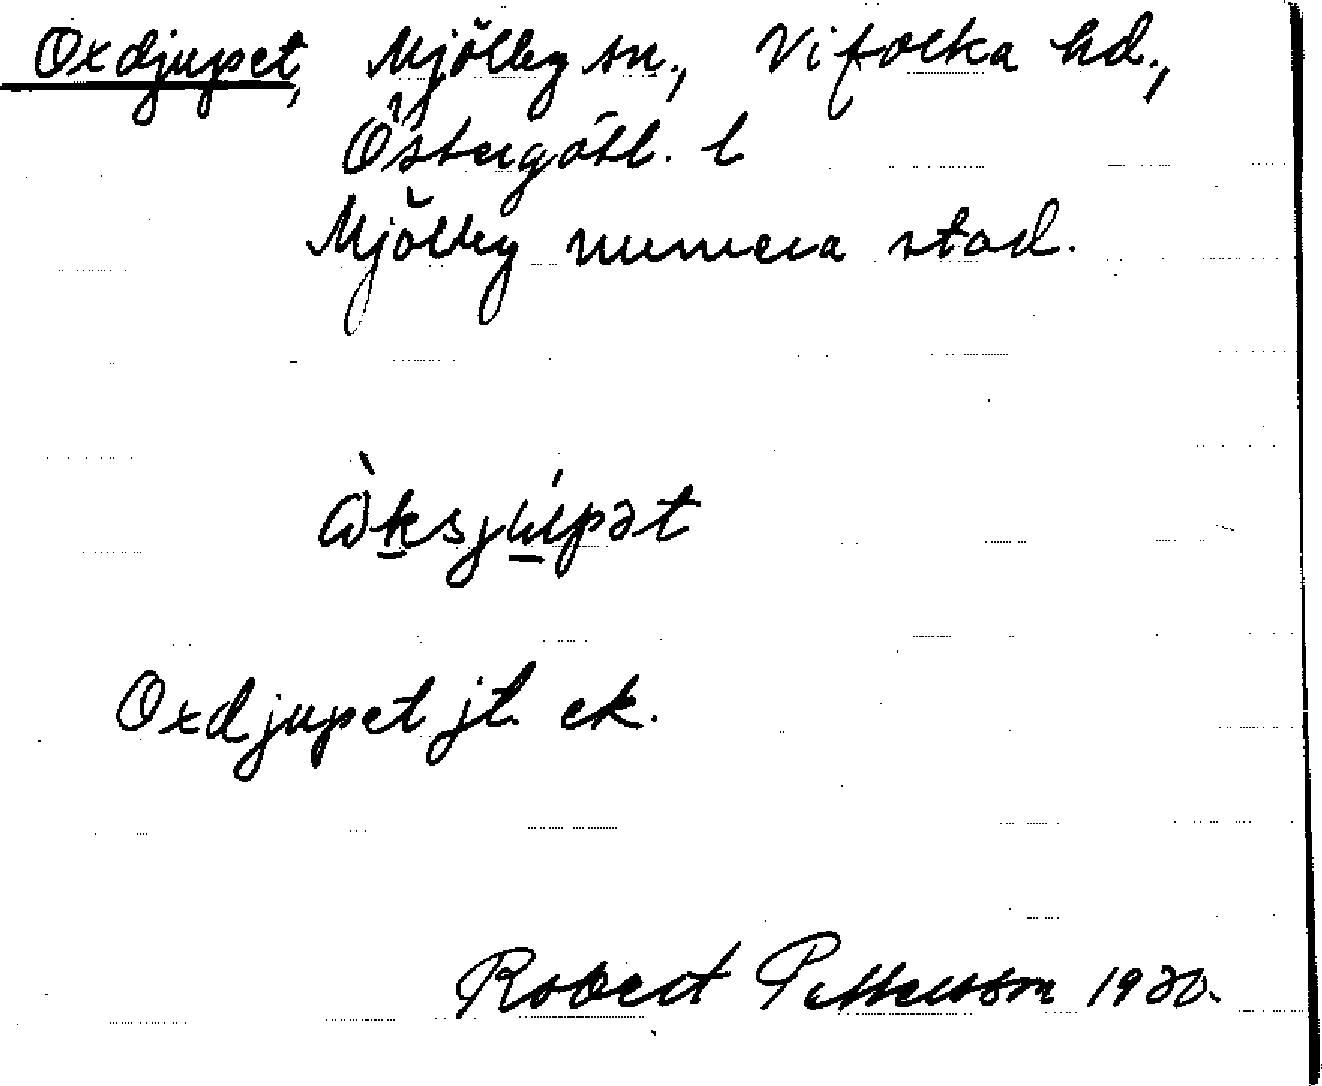 Oxdjupet, Mjölby sn., Vifolka hd.,
Östergötl. l
Mjölby numera stad.
Oxdjupet jt. ek.
Robert Pettersson 1930.